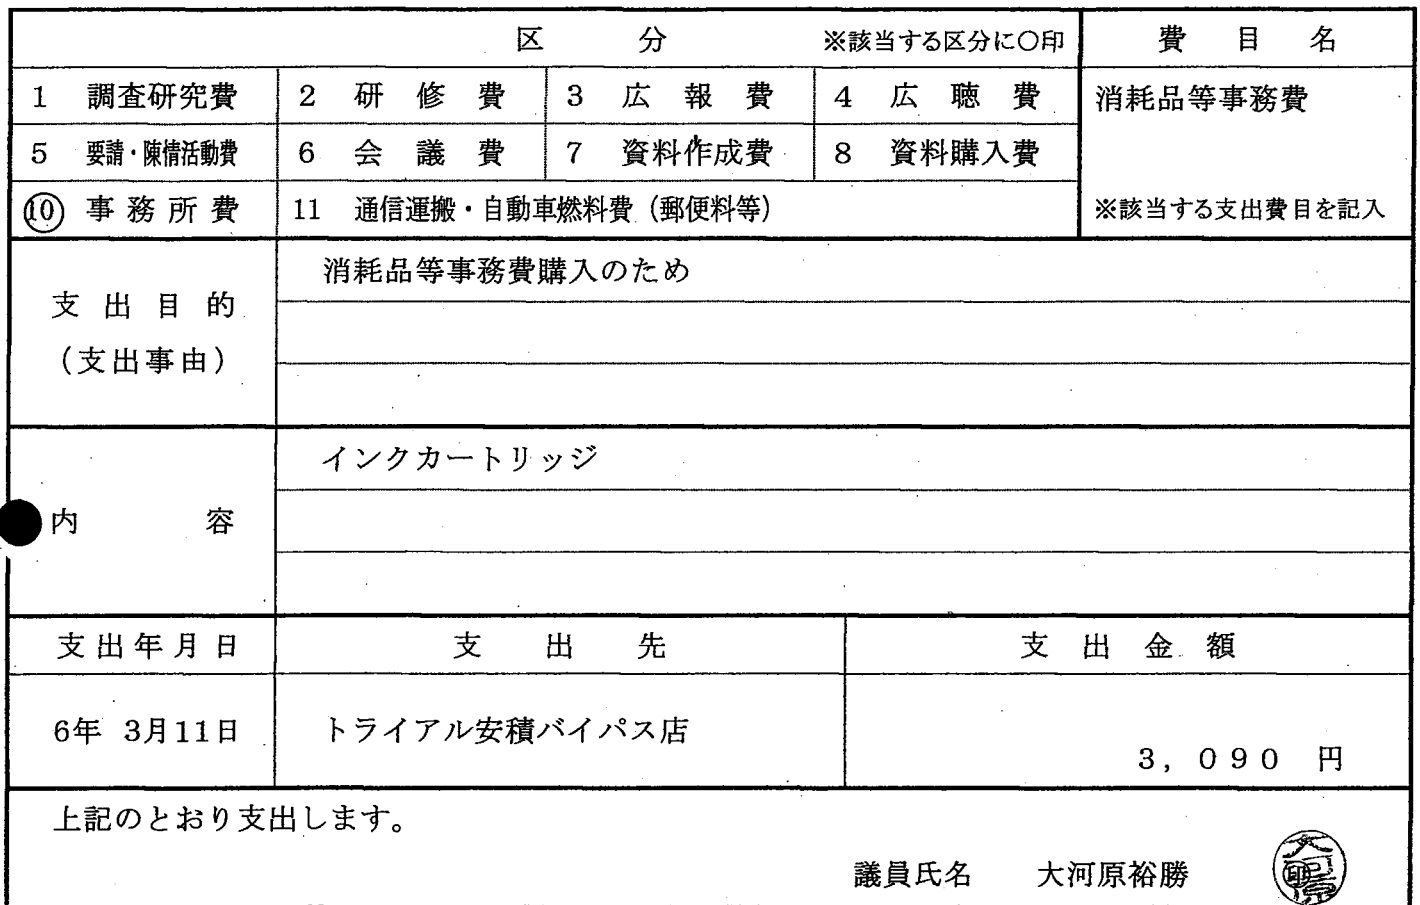 区 分 ※該当する区分に〇印 費目名
1 調査研究費 2 研修費 3 広報費 4 広聴費 消耗品等事務費
5 要請・陳情活動費 6 会議費 7 資料作成費 8 資料購入費
⑩ 事務所費 11 通信運搬・自動車燃料費（郵便料等） ※該当する支出費目を記入
支出目的
（支出事由）
消耗品等事務費購入のため
内容
インクカートリッジ
支出年月日 支出先 支出金額
6年 3月11日 トライアル安積バイパス店 3,090 円
上記のとおり支出します。
議員氏名 大河原裕勝 大河原